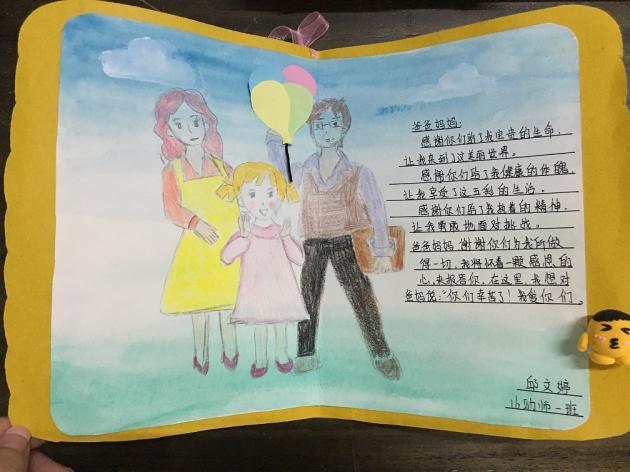 爸爸妈妈:
感谢你们给了我宝贵的生命,
让我来到了这美丽世界。
感谢你们给了我健康的体魄,
让我享受了这五彩的生活。
感谢你们给了我执着的精神,
让我勇敢地面对挑战。
爸爸妈妈谢谢你们为我所做
得一切,我将怀着一颗感恩的
心,来报答你,在这里,我想对
爸妈说:“你们辛苦了!我爱你们。
邱文婷
16幼师一班